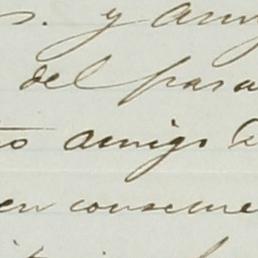 s. y am
del para
to amigo
en consecue